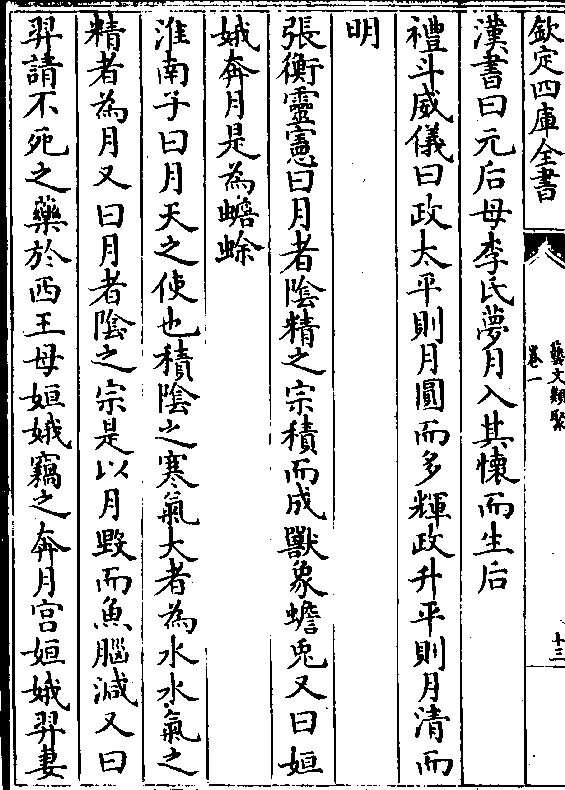 欽定四庫全書
藝文類聚
卷一
十三
漢書曰元后母李氏夢月入其懷而生后
禮斗威儀曰政太平則月圓而多輝政升平則月清而
明
張衡靈憲曰月者陰精之宗積而成獸象蟾兎又曰姮
娥奔月是為蟾蜍
淮南子曰月天之使也積陰之寒氣大者為水水氣之
精者為月又曰月者陰之宗是以月毀而魚腦減又曰
羿請不死之藥於西王母姮娥竊之奔月宫姮娥羿妻